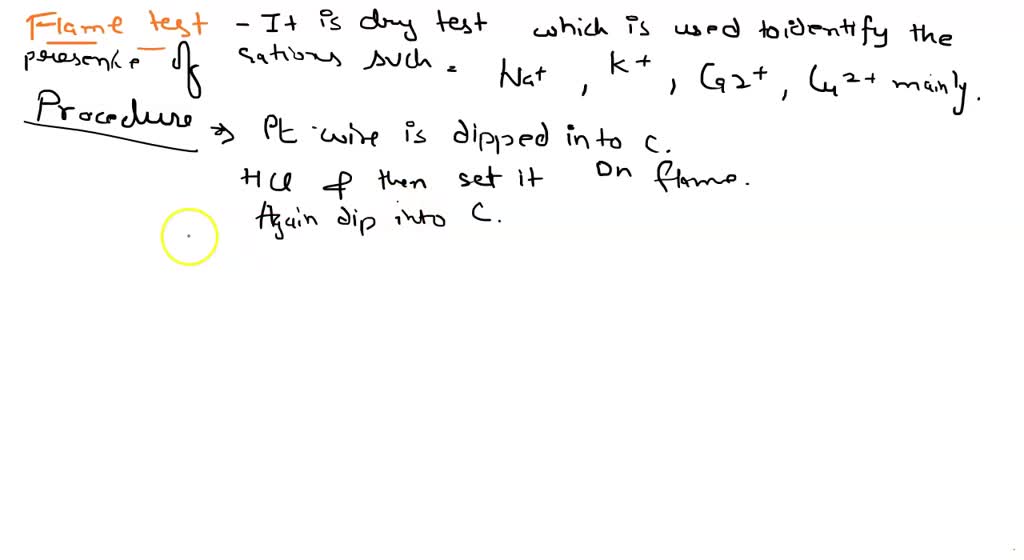 Flame test - It is dry test which is used to identify the
presence of cations such = Na+, K+, Ca2+, Cu2+ mainly.
Procedure => Pt wire is dipped into C.
HCl & then set it on flame.
Again dip into C.